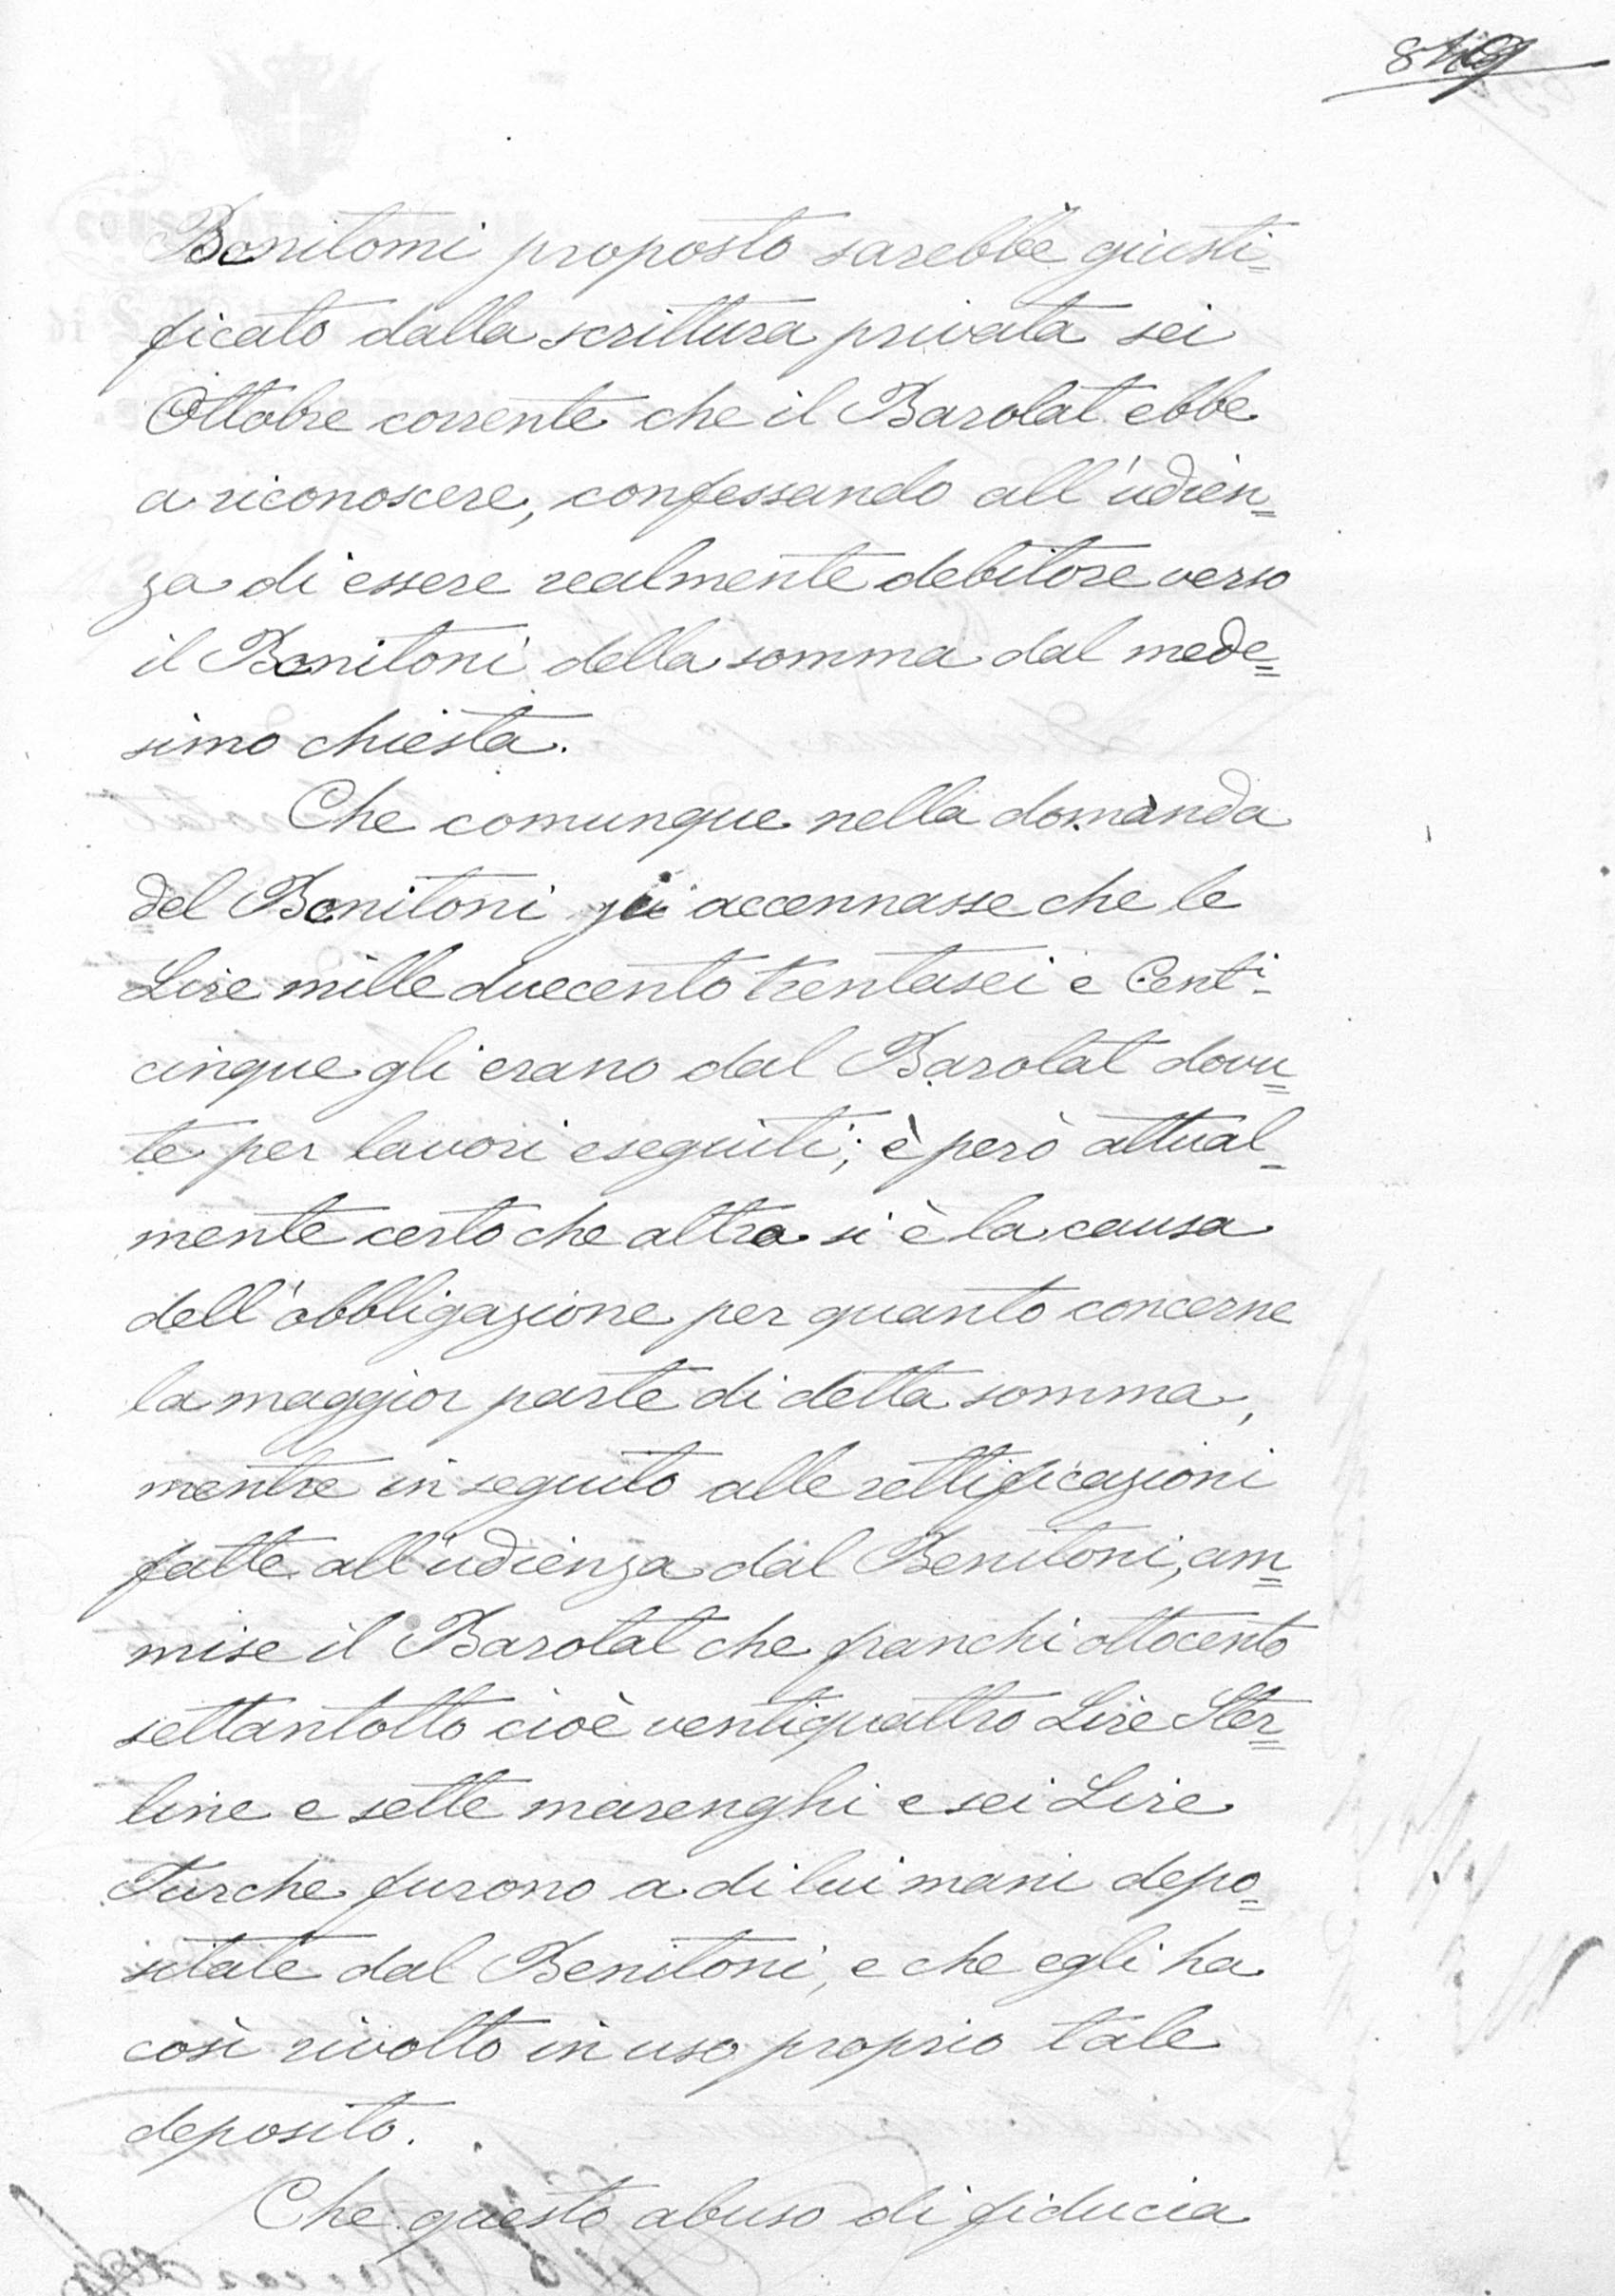 Benitomi proposto sarebbe giusti=
ficato dalla scrittura privata sei
Ottobre corrente che il Barolat ebbe
a riconoscere, confessando all'udien=
za di essere realmente debitore verso
il Benitoni della somma dal mede=
simo chiesta.
Che comunque nella domanda
del Benitoni si accennasse che le
Lire mille duecento trentasei e Centi
cinque gli erano dal Barolat dovu=
te per lavori eseguiti; è però attual=
mente certo che altra si è la causa
dell'obbligazione per quanto concerne
la maggior parte di detta somma,
mentre in seguito alle rettificazioni
fatte all'udienza dal Benitoni, am=
mise il Barolat che franchi ottocento
settantotto cioè ventiquattro Lire Ster=
line e sette marenghi e sei Lire
Turche furono a di lui mani depo=
sitate dal Benitoni, e che egli ha
così rivolto in uso proprio tale
deposito.
Che questo abuso di fiducia